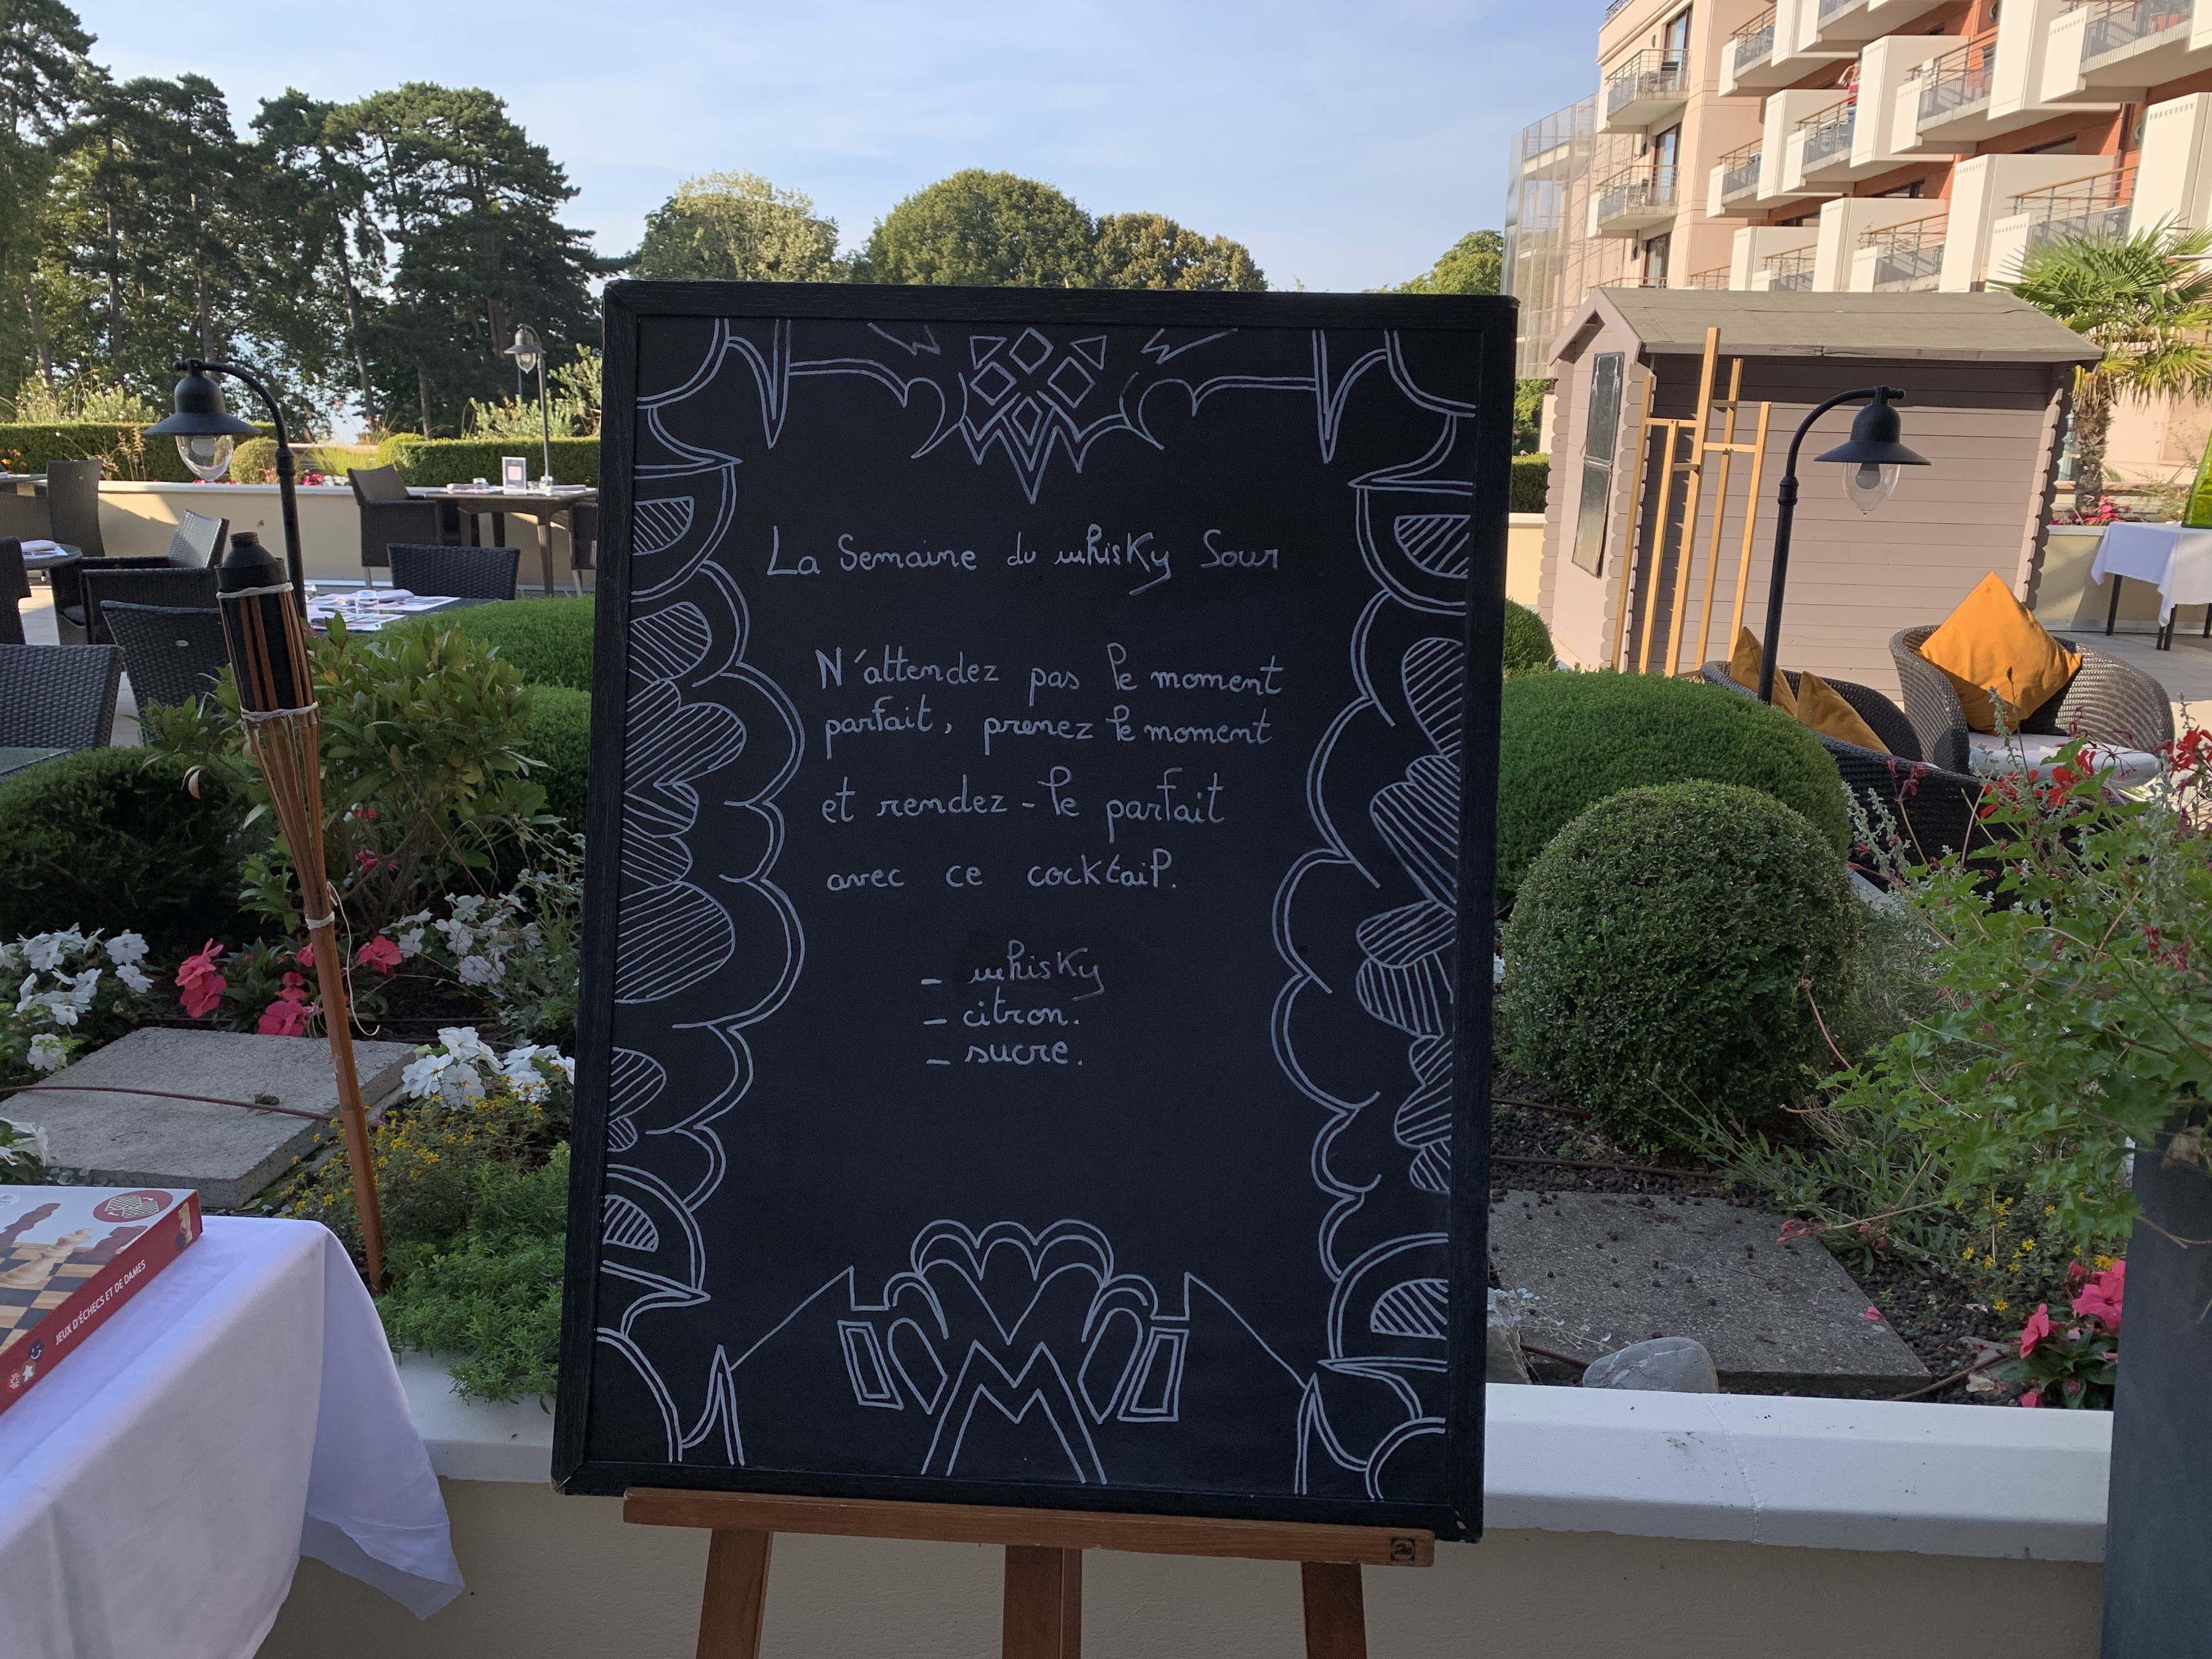 La Semaine du whisky Sour
N'attendez pas le moment
parfait, prenez le moment
et rendez-le parfait
avec ce cocktail.
- whisky
- citron.
- sucre.
JEUX D'ÉCHECS ET DE DAMES